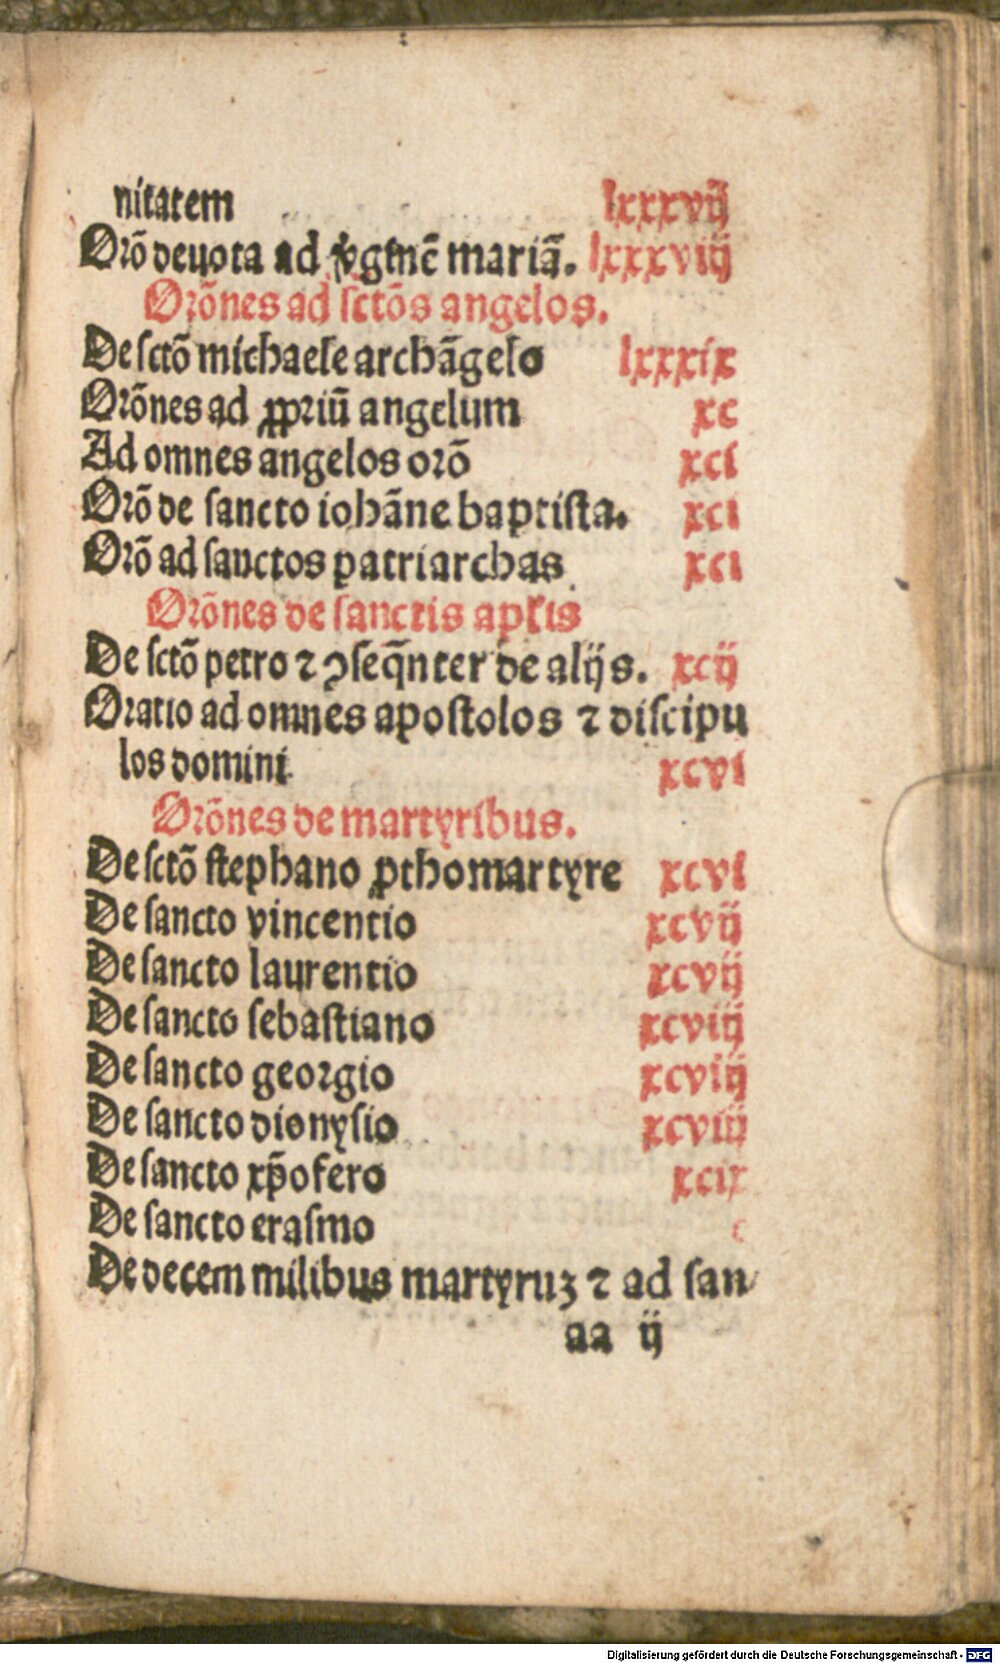 nitatem lxxxvij
Orō deuota ad v̄ginē mariā. lxxxviij
Orōnes ad sctōs angelos.
De sctō michaele archāgelo lxxxix
Orōnes ad ꝓpriū angelum xc
Ad omnes angelos orō xci
Orō de sancto iohāne baptista. xci
Orō ad sanctos patriarchas xci
Orōnes de sanctis apƚis
De sctō petro ⁊ ꝯseq̄nter de alijs. xcij
Oratio ad omnes apostolos ⁊ discipu
los domini xcvi
Orōnes de martyribus.
De sctō stephano ꝓthomartyre xcvi
De sancto vincentio xcvij
De sancto laurentio xcvij
De sancto sebastiano xcviij
De sancto georgio xcviij
De sancto dionysio xcviij
De sancto xp̄ofero xcix
De sancto erasmo c
De decem milibus martyruꝫ ⁊ ad san⸗
aa ij
Digitalisierung gefördert durch die Deutsche Forschungsgemeinschaft - DFG